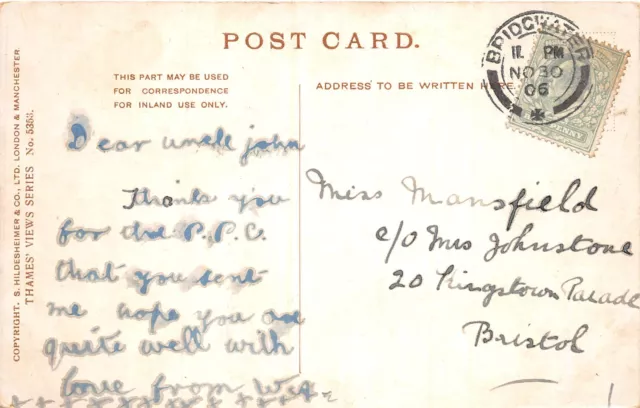 POST CARD.
THIS PART MAY BE USED
FOR CORRESPONDENCE
FOR INLAND USE ONLY.
ADDRESS TO BE WRITTEN HERE.
BRIDGWATER
11 PM
NO 30
06
PENNY
COPYRIGHT. S. HILDESHEIMER & CO., LTD. LONDON & MANCHESTER.
THAMES' VIEWS SERIES No. 5353.
Dear uncle john
Thank you
for the P.P.C.
that you sent
me hope you are
quite well with
love from
x x x x x x x x x x x x
Miss Mansfield
c/o Mrs Johnstone
20 Kingstown Parade
Bristol